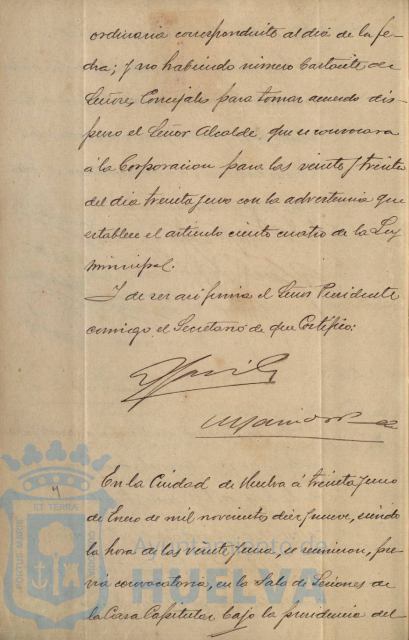 ordinaria correspondiente al dia de la fe-
cha; y no habiendo número bastante de
Señores Concejales para tomar acuerdo dis-
puso el Señor Alcalde, que se convocara
á la Corporacion para las veinte y treinta
del dia treinta y uno con la advertencia que
establece el artículo ciento cuatro de la Ley
municipal.
Y de ser asi firma el Señor Presidente
conmigo el Secretario de que Certifico:
En la Ciudad de Huelva á treinta y uno
de Enero de mil novecientos diez y nueve, siendo
la hora de las veinte y una, se reunieron, pré-
via convocatoria, en la Sala de Sesiones de
la Casa Capitular bajo la presidencia del
Ayuntamiento de
HUELVA
PORTUS MARIS
ET TERRA